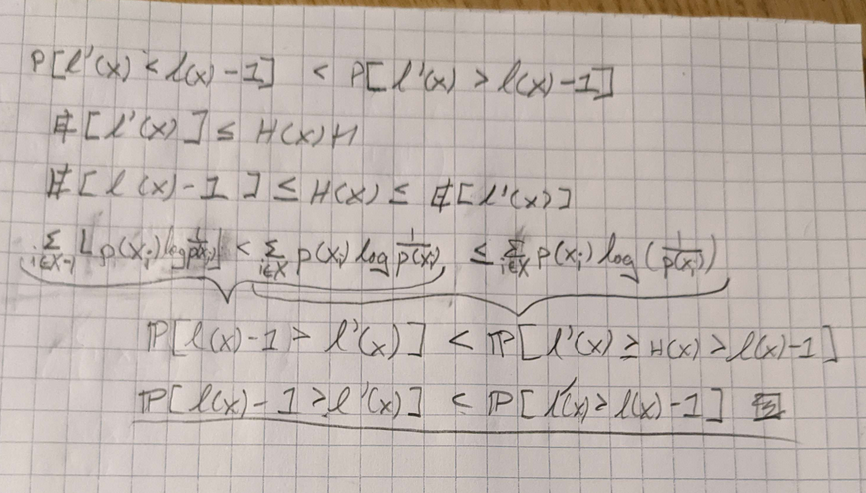 P[l'(x) < l(x)-1] < P[l'(x) > l(x)-1]
E[l'(x)] ≤ H(x)+1
E[l(x)-1] ≤ H(x) ≤ E[l'(x)]
< Σ i∈X p(xi) log 1/p(xi) ≤ Σ i∈X p(xi) log(1/p(xi))
P[l(x)-1 > l'(x)] < P[l'(x) ≥ H(x) > l(x)-1]
P[l(x)-1 > l'(x)] < P[l'(x) > l(x)-1]